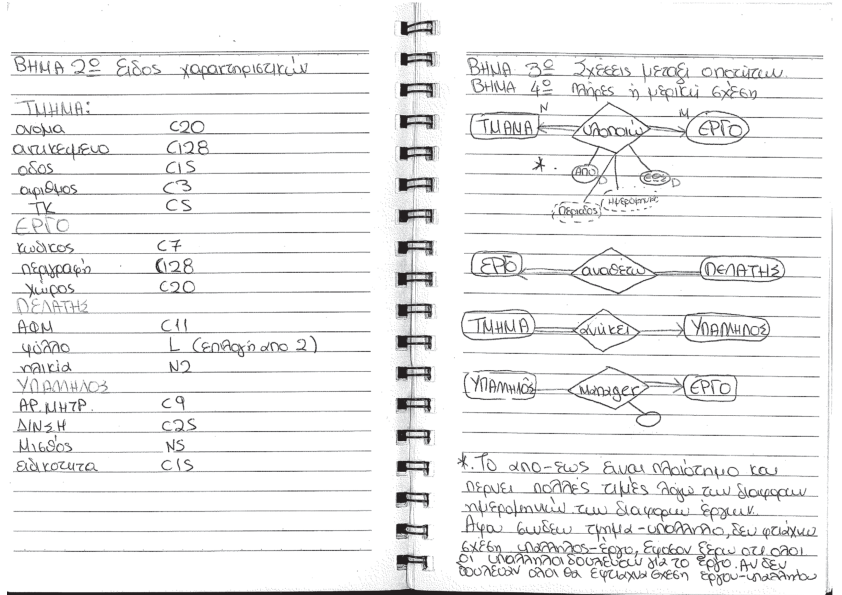 ΒΗΜΑ 2ο Είδος χαρακτηριστικών
ΤΜΗΜΑ:
ονομα C20
αντικειμενο C128
οδος C15
αριθμος C3
ΤΚ C5
ΕΡΓΟ
κωδικος C7
περιγραφή C128
χώρος C20
ΠΕΛΑΤΗΣ
ΑΦΜ C11
φύλλο L (επιλογή απο 2)
ηλικία N2
ΥΠΑΛΛΗΛΟΣ
ΑΡ. ΜΗΤΡ. C9
Δ/ΝΣΗ C25
Μισθός N5
ειδικοτητα C15
ΒΗΜΑ 3ο Σχέσεις μεταξι οποτύτων.
ΒΗΜΑ 4ο πλήρες ή μερική σχέση
N M
ΤΜΑΜΑ υλοποιώ ΕΡΓΟ
*. ΑΠΟ D ΕΩΣ D
Περιοδος
ΕΡΓΟ αναθέτω ΠΕΛΑΤΗΣ
ΤΜΗΜΑ ανήκει ΥΠΑΛΛΗΛΟΣ
ΥΠΑΛΛΗΛΟΣ Manager ΕΡΓΟ
*. Το απο-εως ειναι πλαιότημο και
περνει πολλές τιμές λόγω των διαφορων
ημερομηνιών των διαφορων έργων.
Αφου συνδεω τμημα-υπαλληλο, δεν φτιάχνω
σχέση υπαλληλος-έργο, εφόσον ξέρω οτι ολοι
οι υπαλληλοι δουλεύουν για το έργο. Αν δεν
δουλεύαν ολοι θα έφτιαχνα σχέση εργου-υπαλληλου